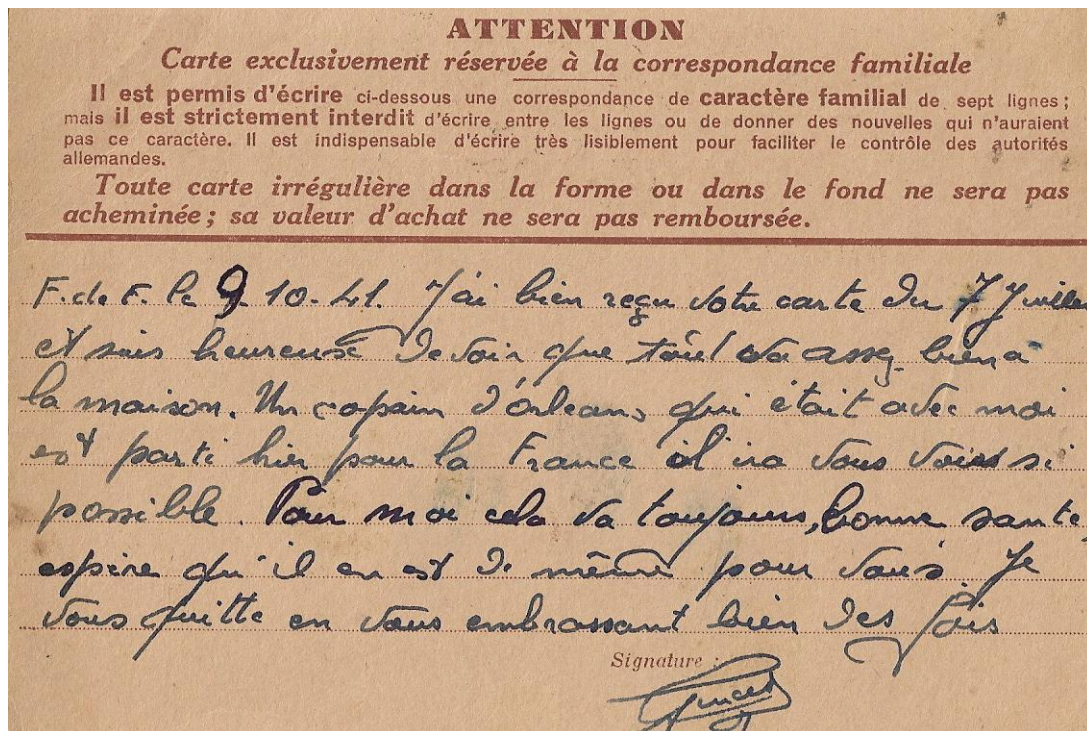 ATTENTION
Carte exclusivement réservée à la correspondance familiale
Il est permis d'écrire ci-dessous une correspondance de caractère familial de sept lignes ;
mais il est strictement interdit d'écrire entre les lignes ou de donner des nouvelles qui n'auraient
pas ce caractère. Il est indispensable d'écrire très lisiblement pour faciliter le contrôle des autorités
allemandes.
Toute carte irrégulière dans la forme ou dans le fond ne sera pas
acheminée ; sa valeur d'achat ne sera pas remboursée.
F. de F. le 9.10-41. J'ai bien reçu votre carte du 7
et suis heureuse de voir que tout va assez bien a
la maison. Un copain d'orleans qui était avec moi
est parti hier pour la France il ira vous voir si
possible. Pour moi cela va toujours, bonne santé,
espère qu'il en est de même pour vous. Je
vous quitte en vous embrassant bien des fois
Signature :